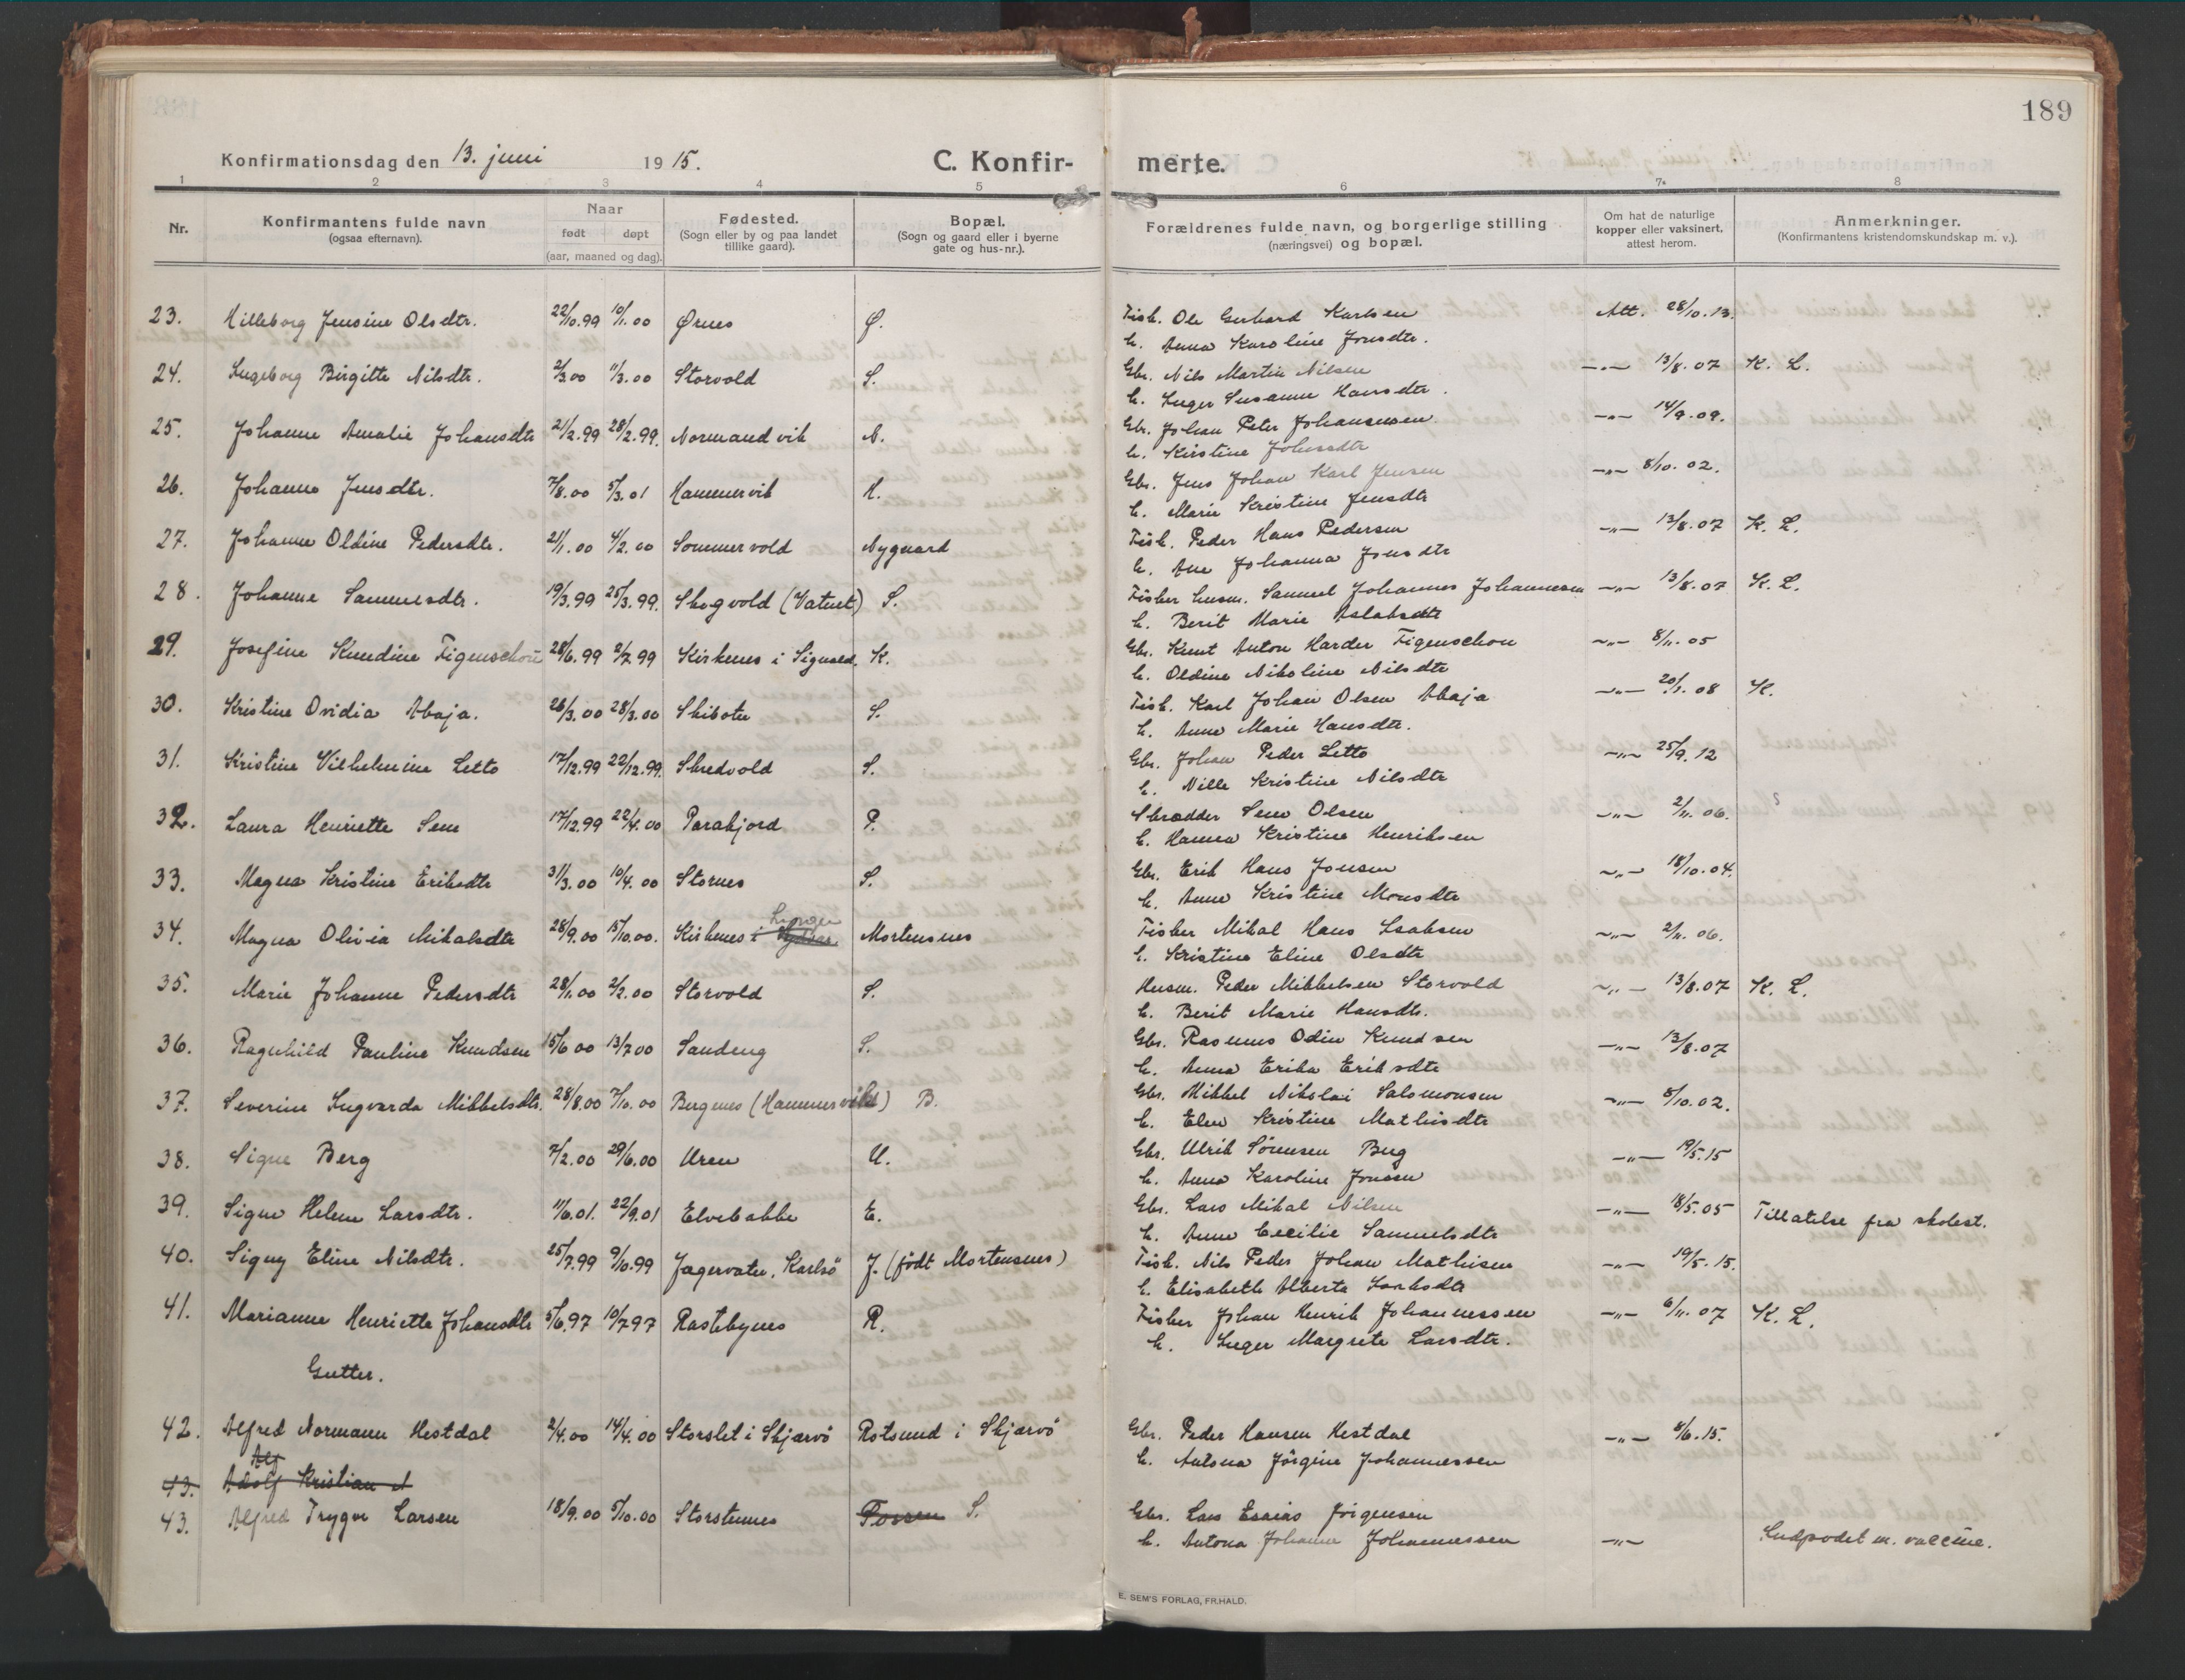 189
Konfirmationsdag den 13. juni 1915.
C. Konfirmerte.
1 2 3 4 5 6 7. 8
Nr.
Konfirmantens fulde navn
(ogsaa efternavn).
Naar
født døpt
(aar, maaned og dag).
Fødested.
(Sogn eller by og paa landet
tillike gaard).
Bopæl.
(Sogn og gaard eller i byerne
gate og hus-nr.).
Forældrenes fulde navn, og borgerlige stilling
(næringsvei) og bopæl.
Om hat de naturlige
kopper eller vaksinert,
attest herom.
Anmerkninger.
(Konfirmantens kristendomskundskap m. v.).
23. Hilleborg Jensine Olsdtr. 22/10.99 10/1.00 Ørnes Ø. Fisk. Ole Gerhard Karlsen Att. 28/10.13.
h. Anna Karoline Jonsdtr.
24. Ingeborg Birgitte Nilsdtr. 2/3.00 11/3.00 Storvold S. Gbr. Nils Martin Nilsen —„— 13/8.07 K. L.
h. Inger Susanne Hansdtr.
25. Johanne Amalie Johansdtr 21/2.99 28/2.99. Normandvik N. Gbr. Johan Peter Johannessen —„— 14/9.09.
h. Kirstine Johnsdtr
26. Johanne Jensdtr. 7/8.00 5/3.01 Hammervik H. Gbr. Jens Johan Karl Jensen —„— 8/10.02.
h. Marie Kristine Jensdtr
27. Johanne Oldine Pedersdtr. 21/1.00 4/2.00 Sommervold Nygaard Fisk. Peder Hans Pedersen —„— 13/8.07 K. L.
h. Ane Johanna Jonsdtr
28. Johanne Samuelsdtr. 19/3.99 25/3.99. Skogvold (Vatnet) S. Fisker husm. Samuel Johannes Johannesen —„— 13/8.07 K. L.
h. Berit Marie Aslaksdtr
29. Josefine Knudine Figenschou 28/6.99 2/7.99 Kirkenes i Signald. K. Gbr. Knut Anton Harder Figenschou —„— 8/11.05
h. Oldine Nikoline Nilsdtr
30. Kristine Ovidia Abaja. 26/3.00 28/3.00 Skibotn S. Fisk. Karl Johan Olsen Abaja —„— 20/1.08 K.
h. Anne Marie Hansdtr.
31. Kristine Vilhelmine Letto 17/12.99 22/12.99. Skredvold S. Gbr. Johan Peder Letto —„— 25/9.12
h. Nille Kristine Nilsdtr
32. Laura Henriette Sem 17/12.99 22/4.00 Parakjord P. Skrædder Sem Olsen —„— 2/11.06.
h. Hanna Kristine Henriksen
33. Magna Kristine Eriksdtr 31/3.00 10/4.00 Stornes S. Gbr. Erik Hans Jonsen —„— 18/10.04.
h. Anne Kristine Monsdtr
34. Magna Olivia Mikalsdtr 28/9.00 15/10.00. Kirkenes i Lyngen Mortensnes Fisker Mikal Hans Isaksen —„— 2/11.06.
h. Kristine Eline Olsdtr
35. Marie Johanne Pedersdtr 28/1.00 2/2.00 Storvold S. Husm. Peder Mikkelsen Storvold —„— 13/8.07 K. L.
h. Berit Marie Hansdtr.
36. Ragnhild Pauline Knudsen 15/6.00 13/7.00 Sandeng S. Gbr. Rasmus Odin Knudsen —„— 13/8.07
h. Anna Erika Eriksdtr
37. Severine Ingvarda Mikkelsdtr. 28/8.00 7/10.00 Bergenes (Hammervik) B. Gbr. Mikkel Nikolai Salomonsen —„— 8/10.02.
h. Elen Kristine Mathisdtr
38. Signe Berg 7/2.00 29/6.00 Uren U. Gbr. Ulrik Sörensen Berg —„— 19/5.15
h. Anna Karoline Jonsen
39. Signe Helene Larsdtr. 11/6.01. 22/9.01 Elvebakke E. Gbr. Lars Mikal Nilsen —„— 18/5.05 Tillatelse fra skolest.
h. Anne Cecilie Samuelsdtr
40. Signy Eline Nilsdtr. 25/7.99 9/10.99 Jægervatn, Karlsö J. (födt Mortensnes) Fisk. Nils Peder Johan Mathisen —„— 19/5.15.
h. Elisabeth Alberta Isaksdtr
41. Marianne Henriette Johansdtr 5/6.97 10/7.97 Rastebynes R. Fisker Johan Henrik Johannessen —„— 6/11.07 K. L.
h. Inger Margrete Larsdtr.
Gutter.
42. Alfred Normann Hestdal 2/4.00 14/4.00 Storslet i Skjærvö Rotsund i Skjærvö Gbr. Peder Hansen Hestdal —„— 8/6.15.
h. Antona Jörgine Johannessen
Alf
43. Adolf Kristian A
43. Alfred Trygve Larsen 18/9.00 5/10.00 Storstennes Fossen S. Gbr. Lars Esaias Jörgensen
h. Antona Johanne Johannessen —„— Indpodet m. vaccine.
E. SEM'S FORLAG, FR.HALD.